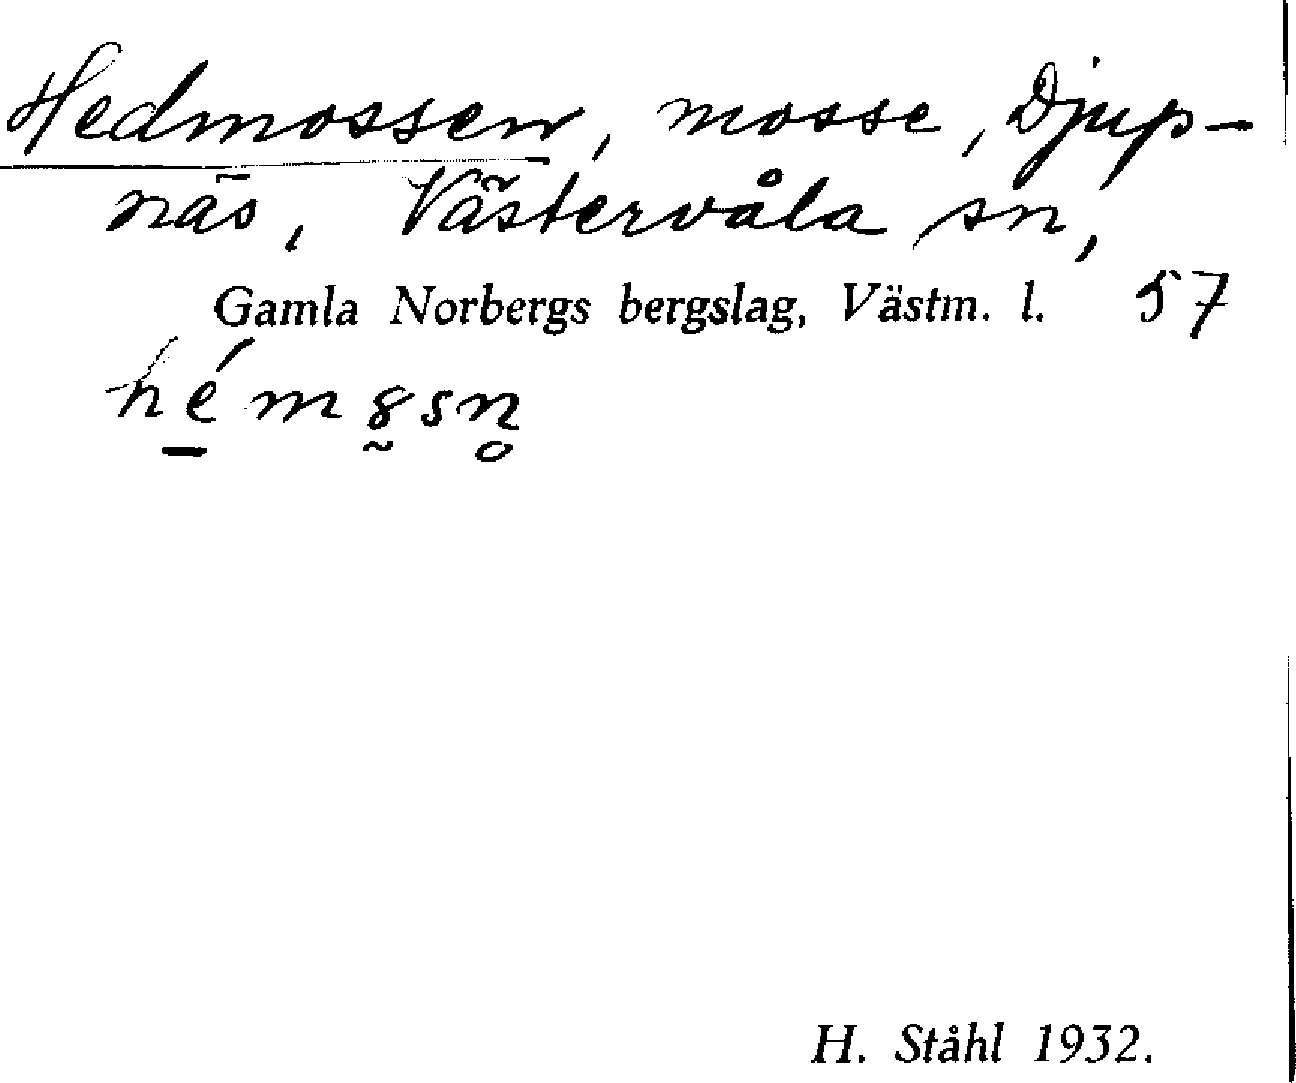 Hedmossen, mosse, Djup-
näs, Västervåla sn,
Gamla Norbergs bergslag, Västm. l. 57
H. Ståhl 1932.